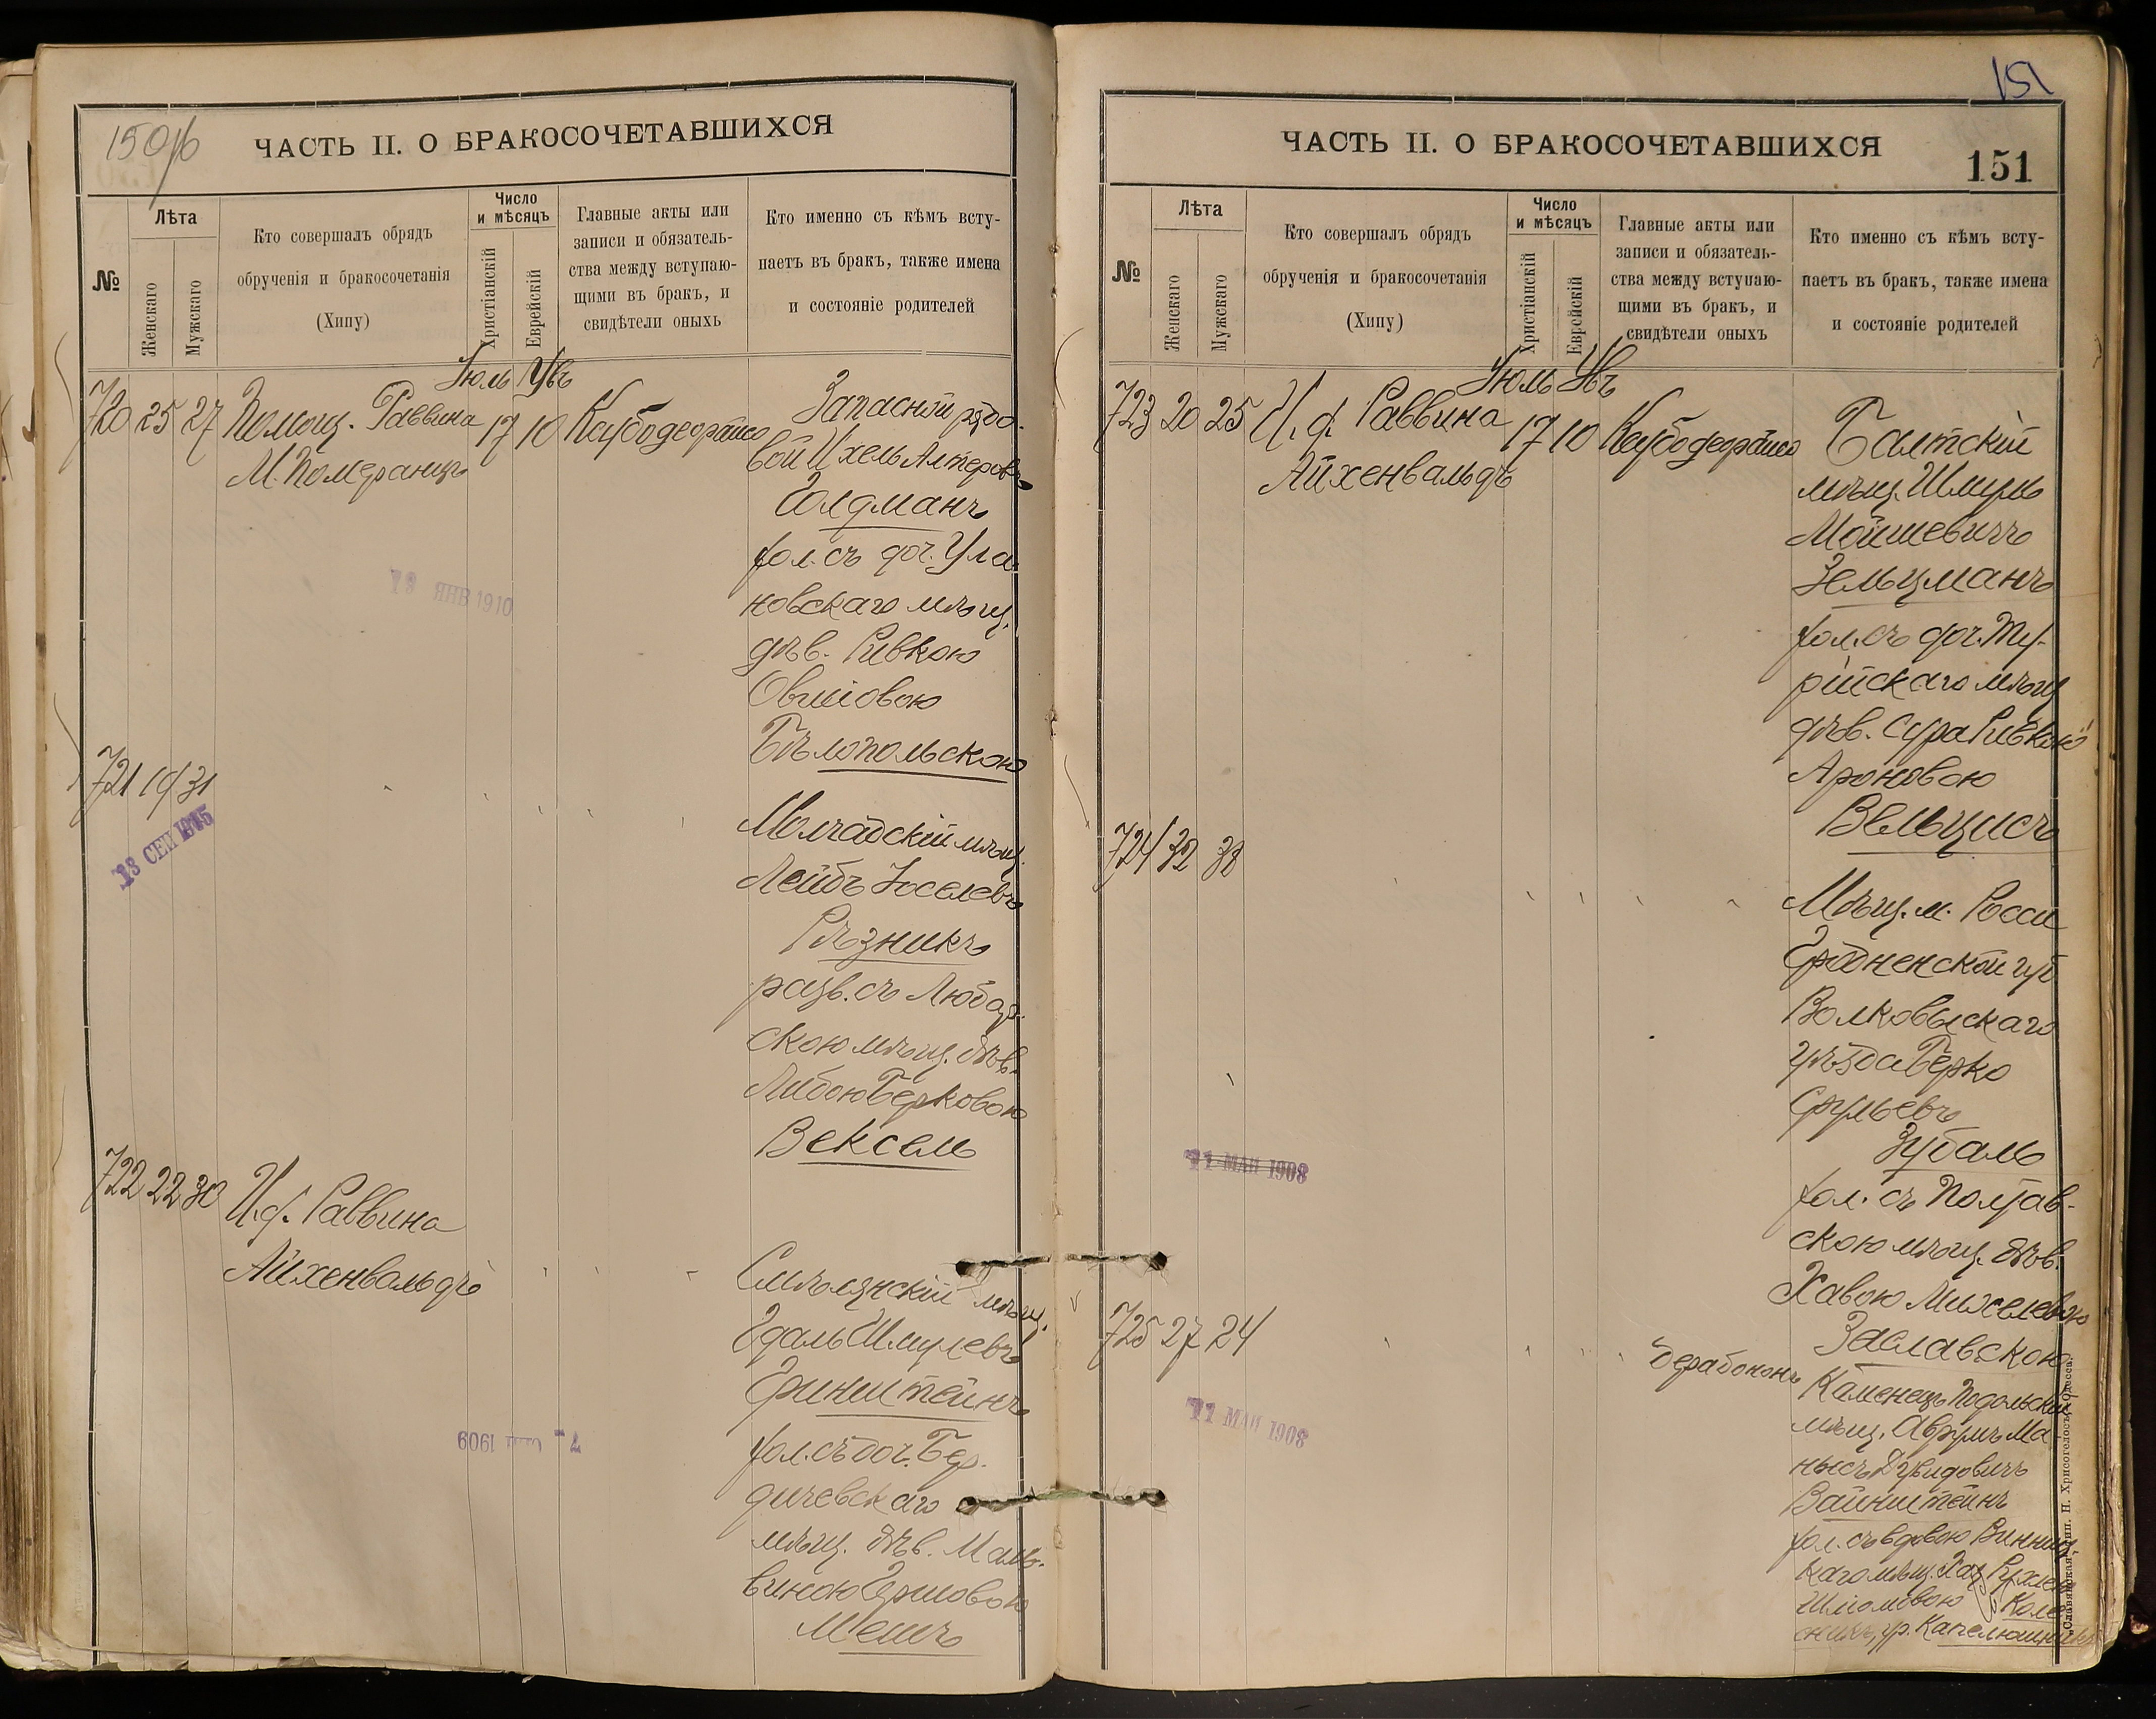 150 об
ЧАСТЬ II. О БРАКОСОЧЕТАВШИХСЯ
№
Лѣта
Женскаго
Мужскаго
Кто совершалъ обрядъ
обрученія и бракосочетанія
(Хипу)
Число
и мѣсяцъ
Христіанскій
Еврейскій
Главные акты или
записи и обязатель-
ства между вступаю-
щими въ бракъ, и
свидѣтели оныхъ
Кто именно съ кѣмъ всту-
паетъ въ бракъ, также имена
и состояніе родителей
Іюль Увъ
720 25 27 Помощ. Раввина 17 10
М. Померанцъ
Запасной рядо-
вой Ихель Алтеровъ
Голдманъ
хол. съ доч. Ула-
новскаго мѣщ.
дѣв. Ривкою
Овшіовою
Бѣлопольскою
13 ЯНВ 1910
721 19 31
13 СЕН 1915
Молчадскій мѣщ.
Лейбъ Іоселевъ
Рѣзникъ
разв. съ Любар-
скою мѣщ. дѣв.
Либою Берковою
Вексель
722 22 30 И. д. Раввина
Айхенвальдъ
Смѣлянскій мѣщ.
Эдаль Шмулевъ
Гринштейнъ
хол. съ доч. Бер-
дичевскаго
мѣщ. дѣв. Маль-
виною Гершовою
Мешъ
7 - 1909
151
ЧАСТЬ II. О БРАКОСОЧЕТАВШИХСЯ
151
№
Лѣта
Женскаго
Мужскаго
Кто совершалъ обрядъ
обрученія и бракосочетанія
(Хипу)
Число
и мѣсяцъ
Христіанскій
Еврейскій
Главные акты или
записи и обязатель-
ства между вступаю-
щими въ бракъ, и
свидѣтели оныхъ
Кто именно съ кѣмъ всту-
паетъ въ бракъ, также имена
и состояніе родителей
Іюль Увъ
723 20 25 И. д. Раввина 17 10
Айхенвальдъ
Балтскій
мѣщ. Шмуль
Мойшевичъ
Зельцманъ
хол. съ доч. Ту-
рійскаго мѣщ
дѣв. Сура Ривкою
Ароновою
Вельцисъ
724 32 38
Мѣщ. м. Росси
Гродненской губ
Волковыскаго
уѣзда Берко
Срульевъ
Зубаль
хол. съ Полтав-
скою мѣщ. дѣв.
Хавою Михелевою
Заславскою
11 МАЙ 1908
725 27 24
Каменецъ Подольскій
мѣщ. Аврумъ Ма-
нысъ Дувидовичъ
Вайнштейнъ
хол. съ вдовою Винниц-
каго мѣщ. Хая Рухлею
Шліомовою Коле-
сникъ, ур. Капелюшникъ
11 МАЙ 1908
Славянская тип. Н. Хрисогелосъ, Одесса.